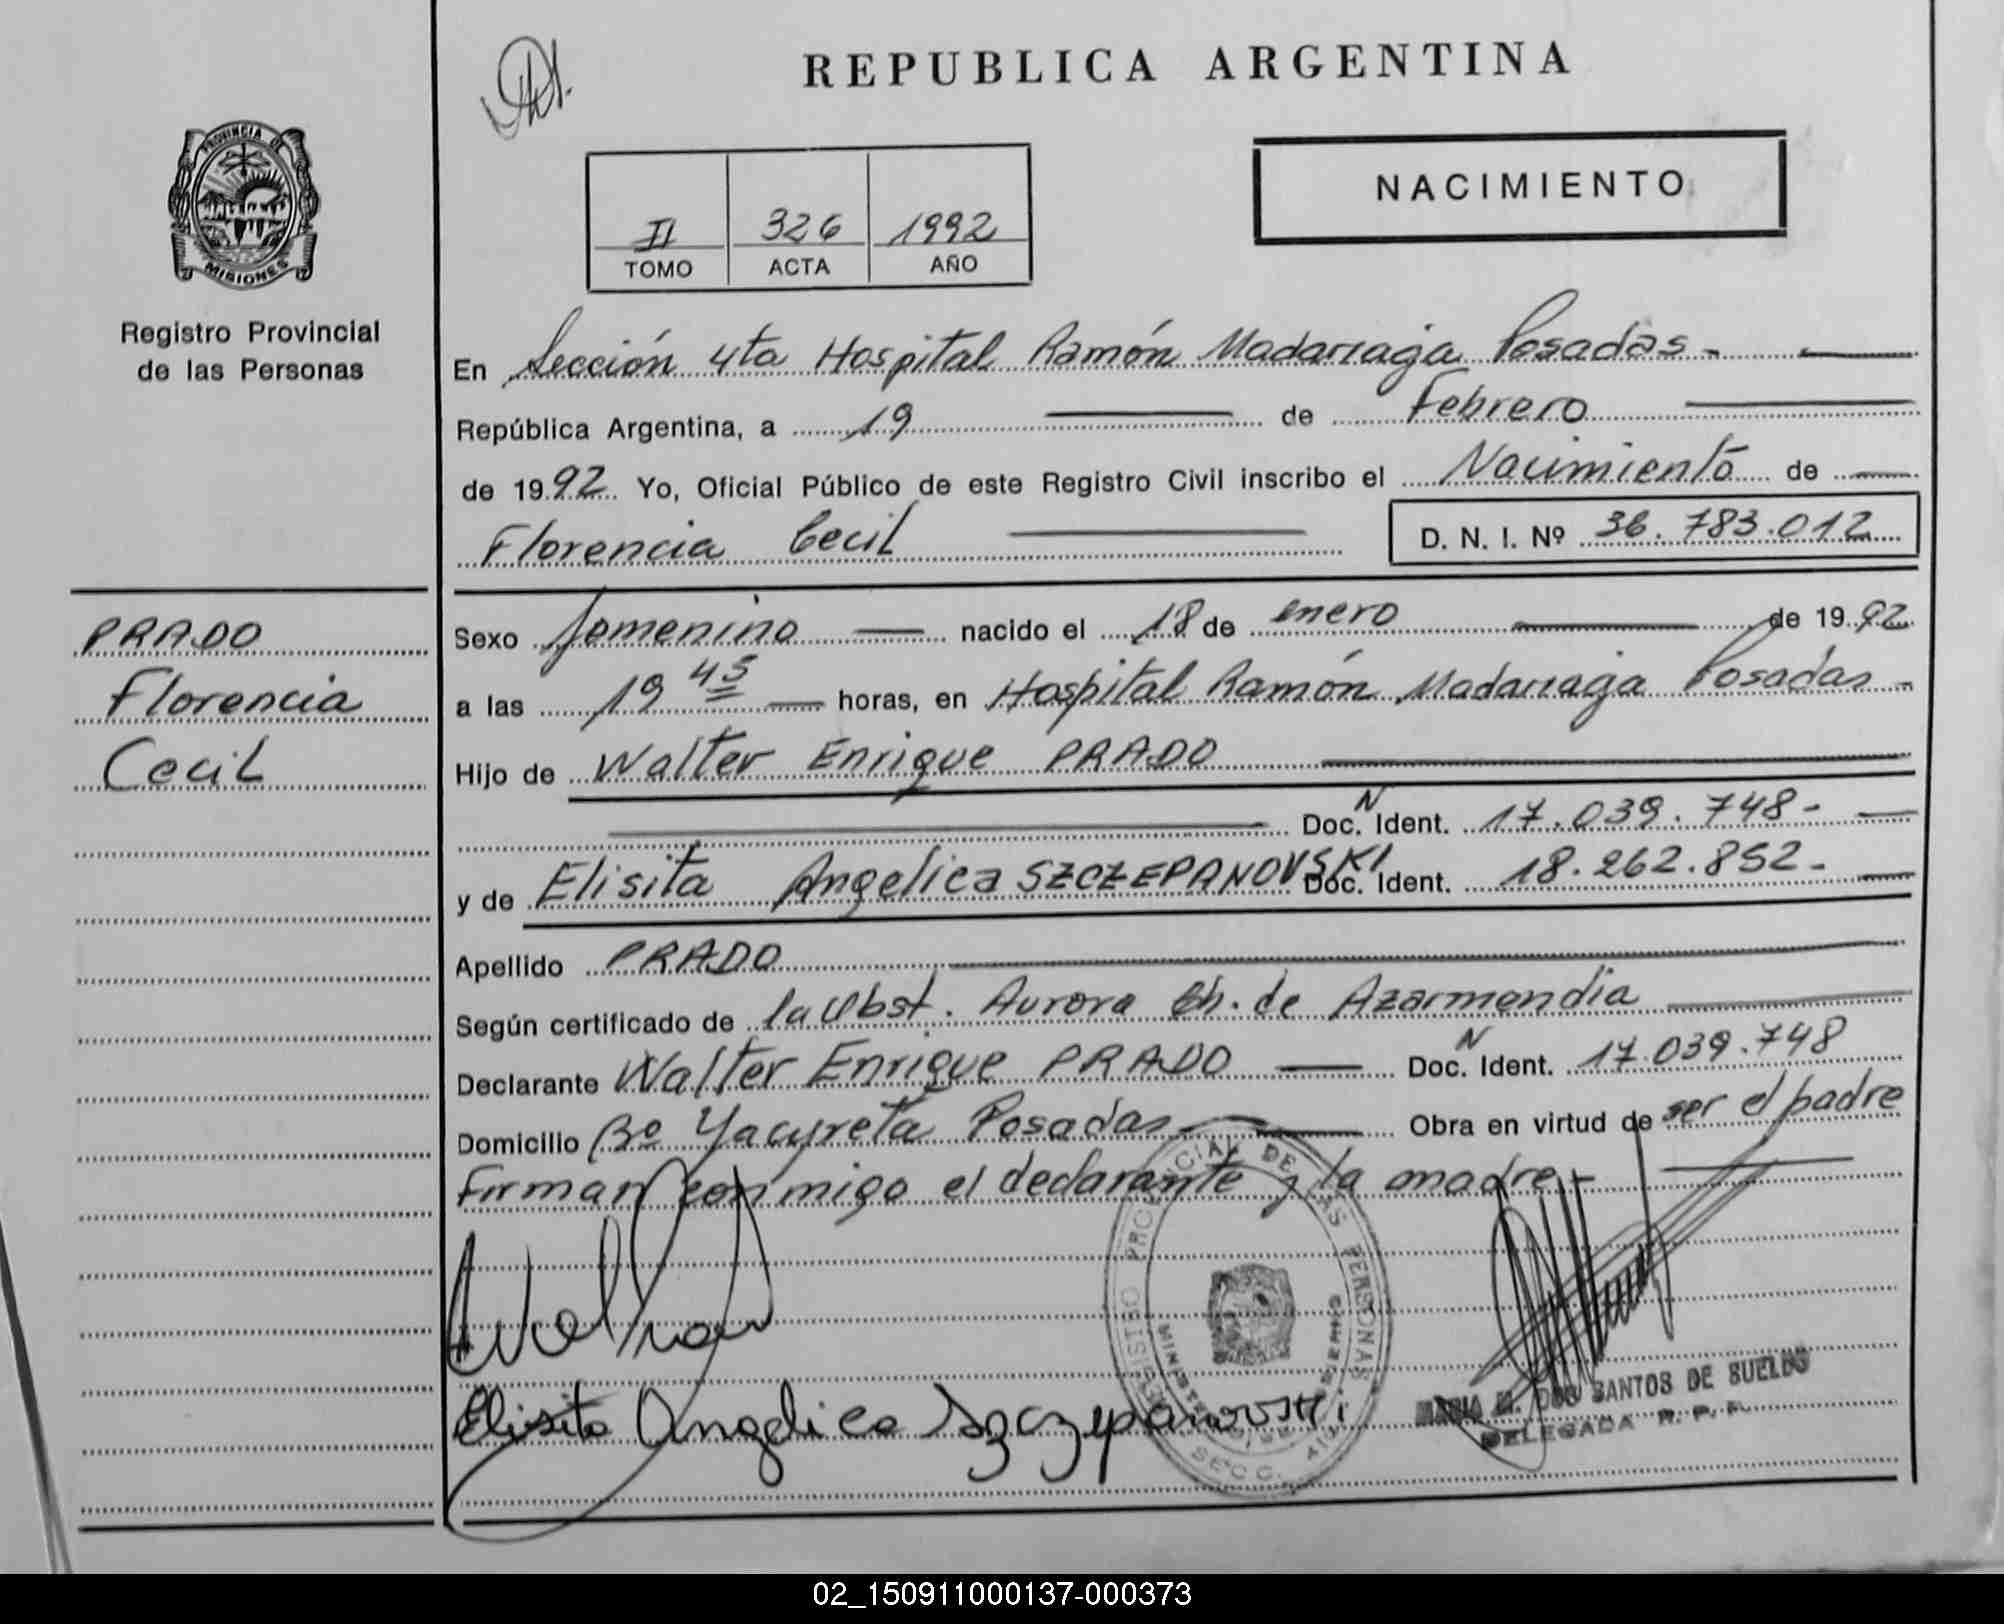 REPUBLICA ARGENTINA
PROVINCIA DE
MISIONES
Registro Provincial
de las Personas
NACIMIENTO
II 326 1992
TOMO ACTA AÑO
En Sección 4ta Hospital Ramón Madariaga Posadas -
República Argentina, a 19 de Febrero
de 1992 Yo, Oficial Público de este Registro Civil inscribo el Nacimiento de
Florencia Cecil D. N. I. Nº 36.783.012
PRADO
Florencia
Cecil
Sexo femenino nacido el 18 de enero de 1992
a las 19 45 horas, en Hospital Ramón Madariaga Posadas -
Hijo de Walter Enrique PRADO
Doc. N Ident. 17.039.748-
y de Elisita Angelica SZCZEPANOVSKI Doc. Ident. 18.262.852-
Apellido PRADO
Según certificado de la Obst. Aurora Ch. de Azarmendia
Declarante Walter Enrique PRADO Doc. N Ident. 17.039.748
Domicilio Bº Yacyreta Posadas Obra en virtud de ser el padre
Firman conmigo el declarante y la madre -
REGISTRO PROVINCIAL DE LAS PERSONAS
Elisita Angelica Szczepanovski
SECC.
MARIA M. DOS SANTOS DE SUELDO
DELEGADA R. P. P.
02_150911000137-000373